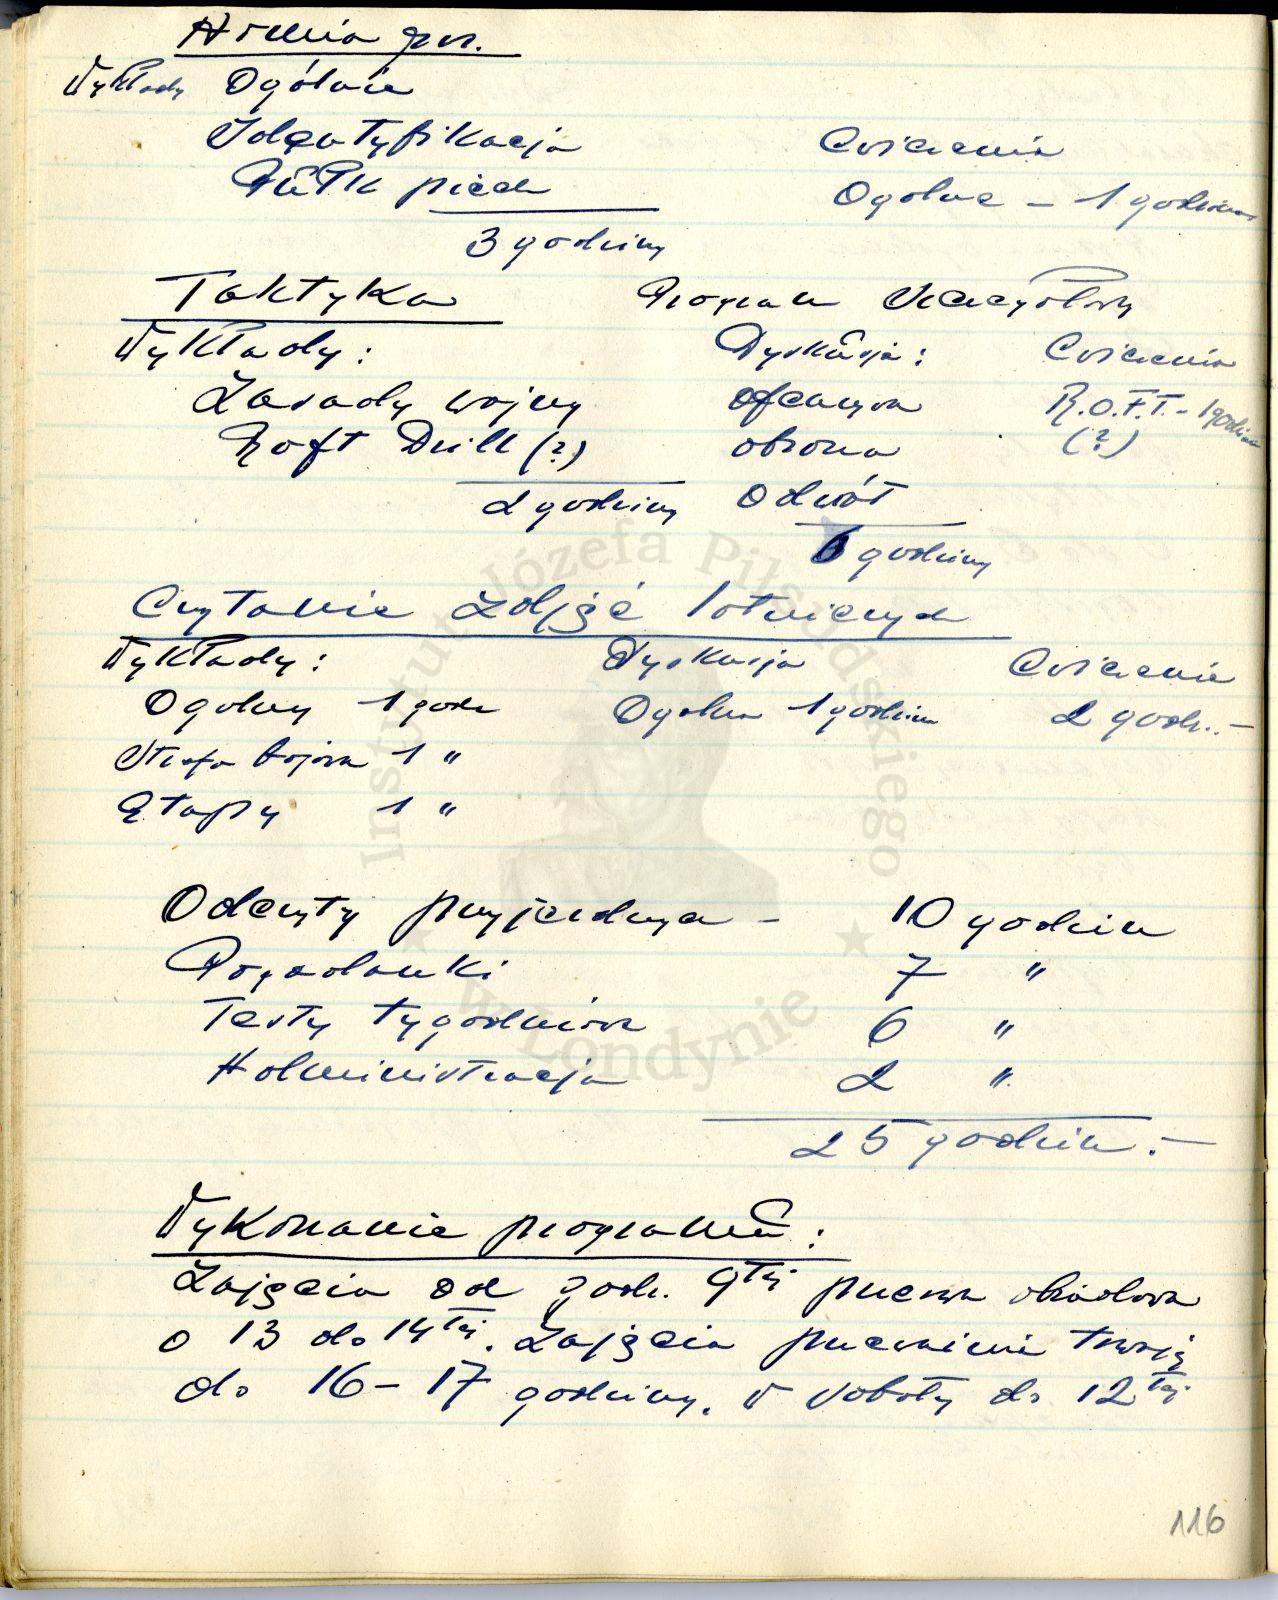 Armia
Wykłady Ogólnie
Identyfikacja Cwiczenia
Pułk piech Ogolne - 1 godzina
3 godziny
Taktyka Program Szczegółowy
Wykłady: Dyskusja: Cwiczenia
Zasady wojny ofensywa R.O.F.T. - 1 godzina
Roft Drill (?) obrona (?)
2 godziny Odwót
6 godziny
Czytanie zdjęć lotniczych
Wykłady: Dyskusja Cwiczenie
Ogolny 1 godz Ogolna 1 godzina 2 godz. -
Strefa bojowa 1 "
Etapy 1 "
Odczyty przyjezdnych - 10 godzin
Pogadanki 7 "
Testy tygodniowe 6 "
Administracja 2 "
25 godzin. -
Wykonanie programu:
Zajęcia od godz. 9tej przerwa obiadowa
o 13 do 14tej. Zajęcia przeważnie trwają
do 16 - 17 godziny. W soboty do 12tej
116
Instytut Józefa Piłsudskiego
w Londynie